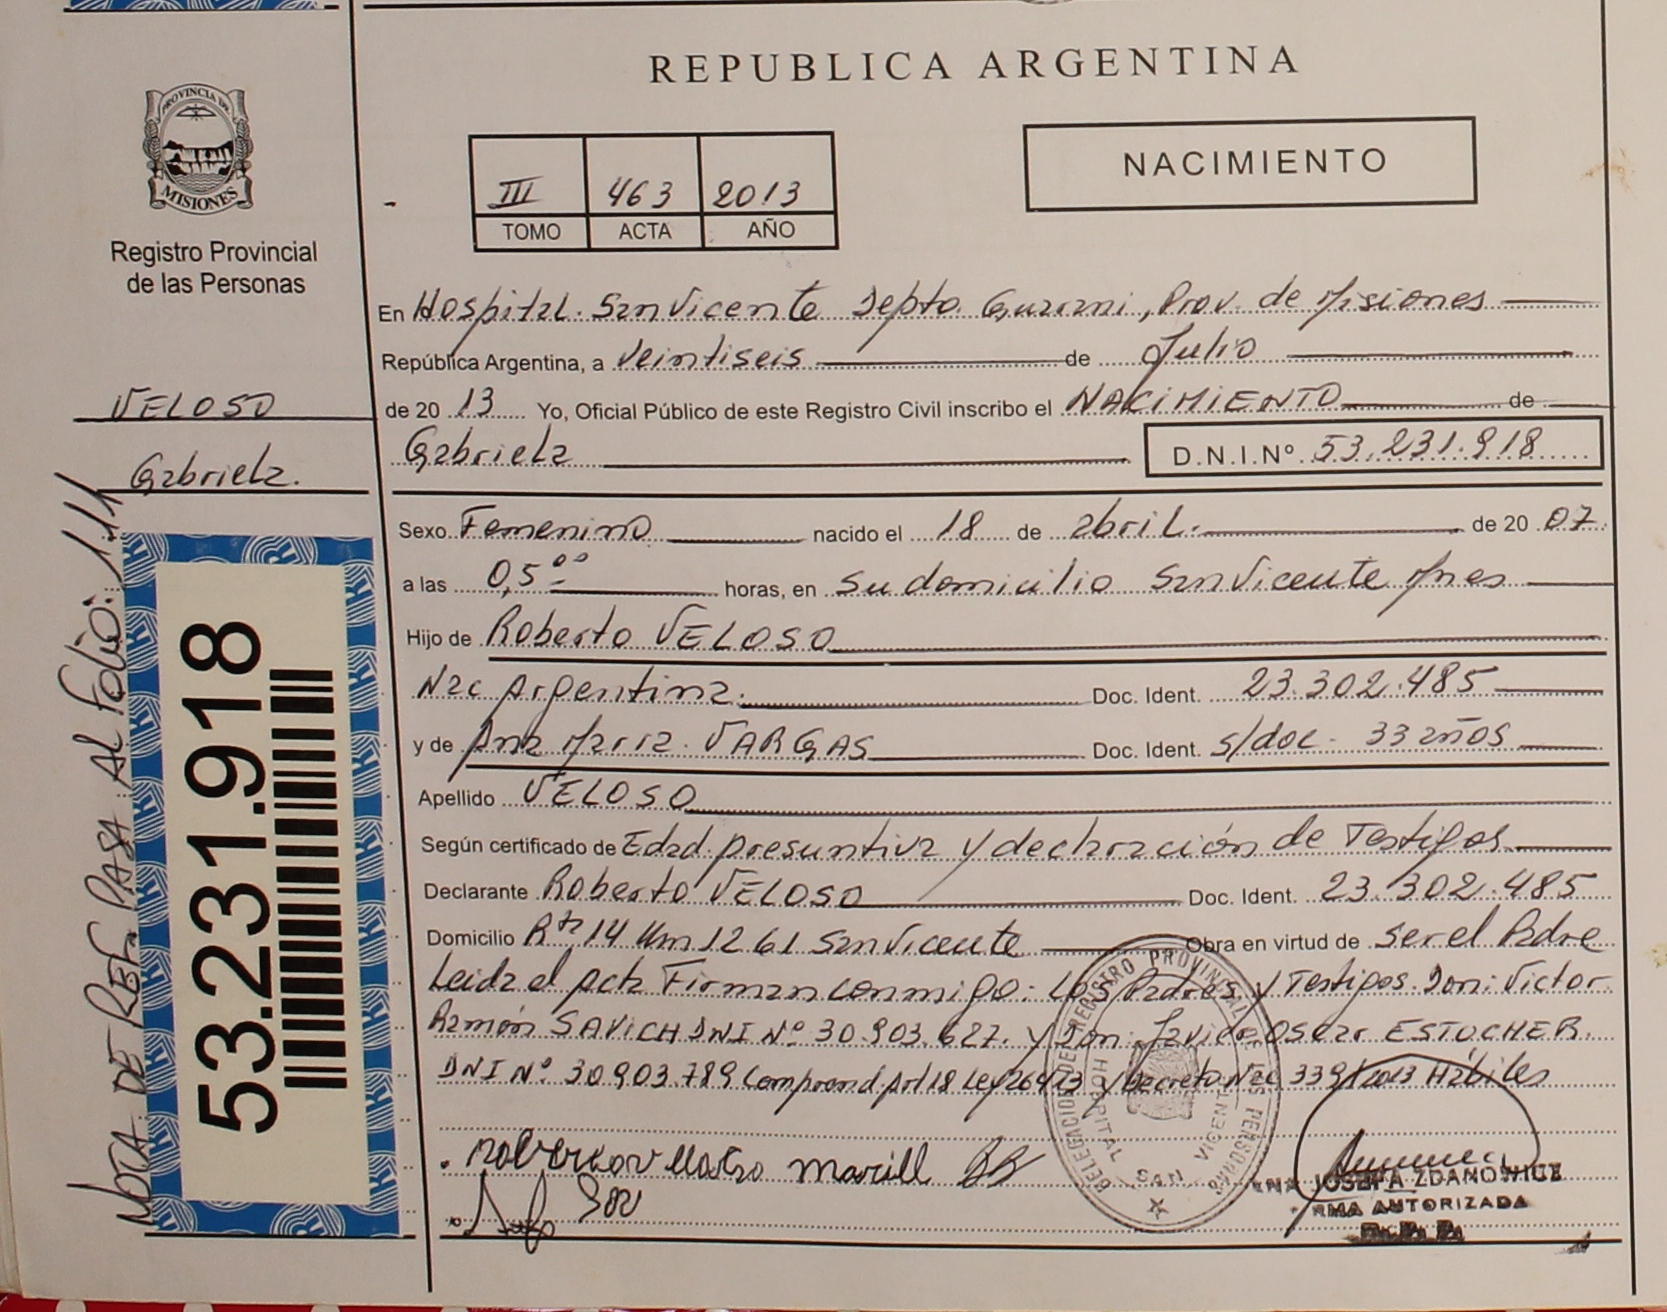 REPUBLICA ARGENTINA
PROVINCIA DE
MISIONES
Registro Provincial
de las Personas
III 463 2013
TOMO ACTA AÑO
NACIMIENTO
En Hospital. San Vicente Depto. Guarani, Prov. de Misiones
República Argentina, a veintiseis de Julio
de 20 13 Yo, Oficial Público de este Registro Civil inscribo el NACIMIENTO de
Gabriela D.N.I.Nº 53.231.918
VELOSO
Gabriela.
Sexo Femenino nacido el 18 de abril. de 20 07
a las 0,5ºº horas, en su domicilio San Vicente Mnes
Hijo de Roberto VELOSO
Nac Argentina. Doc. Ident. 23.302.485
y de Ana Maria. VARGAS Doc. Ident. s/doc - 33 años
Apellido VELOSO
Según certificado de Edad presuntiva y declaración de Testigos
Declarante Roberto VELOSO Doc. Ident. 23.302.485
Domicilio Rta 14 Km 1261 San Vicente Obra en virtud de ser el Padre
Leida el acta Firman conmigo: Los Padres y Testigos Don: Victor
Ramón SAVICH DNI Nº 30.903.627. y Don: Javier Oscar ESTOCHER.
DNI Nº 30903.789 Comprend Art 18 Ley 26413 y Decreto Nac 339/2013 Hábiles
NOTA DE REF. PASA AL FOLIO: 111
53.231.918
DELEGACION DEL REGISTRO PROVINCIAL DE LAS PERSONAS
HOSPITAL SAN VICENTE
JOSEFA ZDANOWICZ
AUTORIZADA